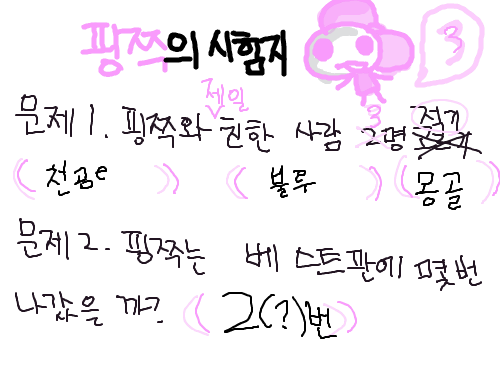 핑쯕의 시험지 3
문제 1. 핑쯕와 제일 친한 사람 3 2명 적기
(천곰e) (불투) (몽골)
문제 2. 핑쯕는 베스트판에 몇번
나갔은까? (2(?)번)